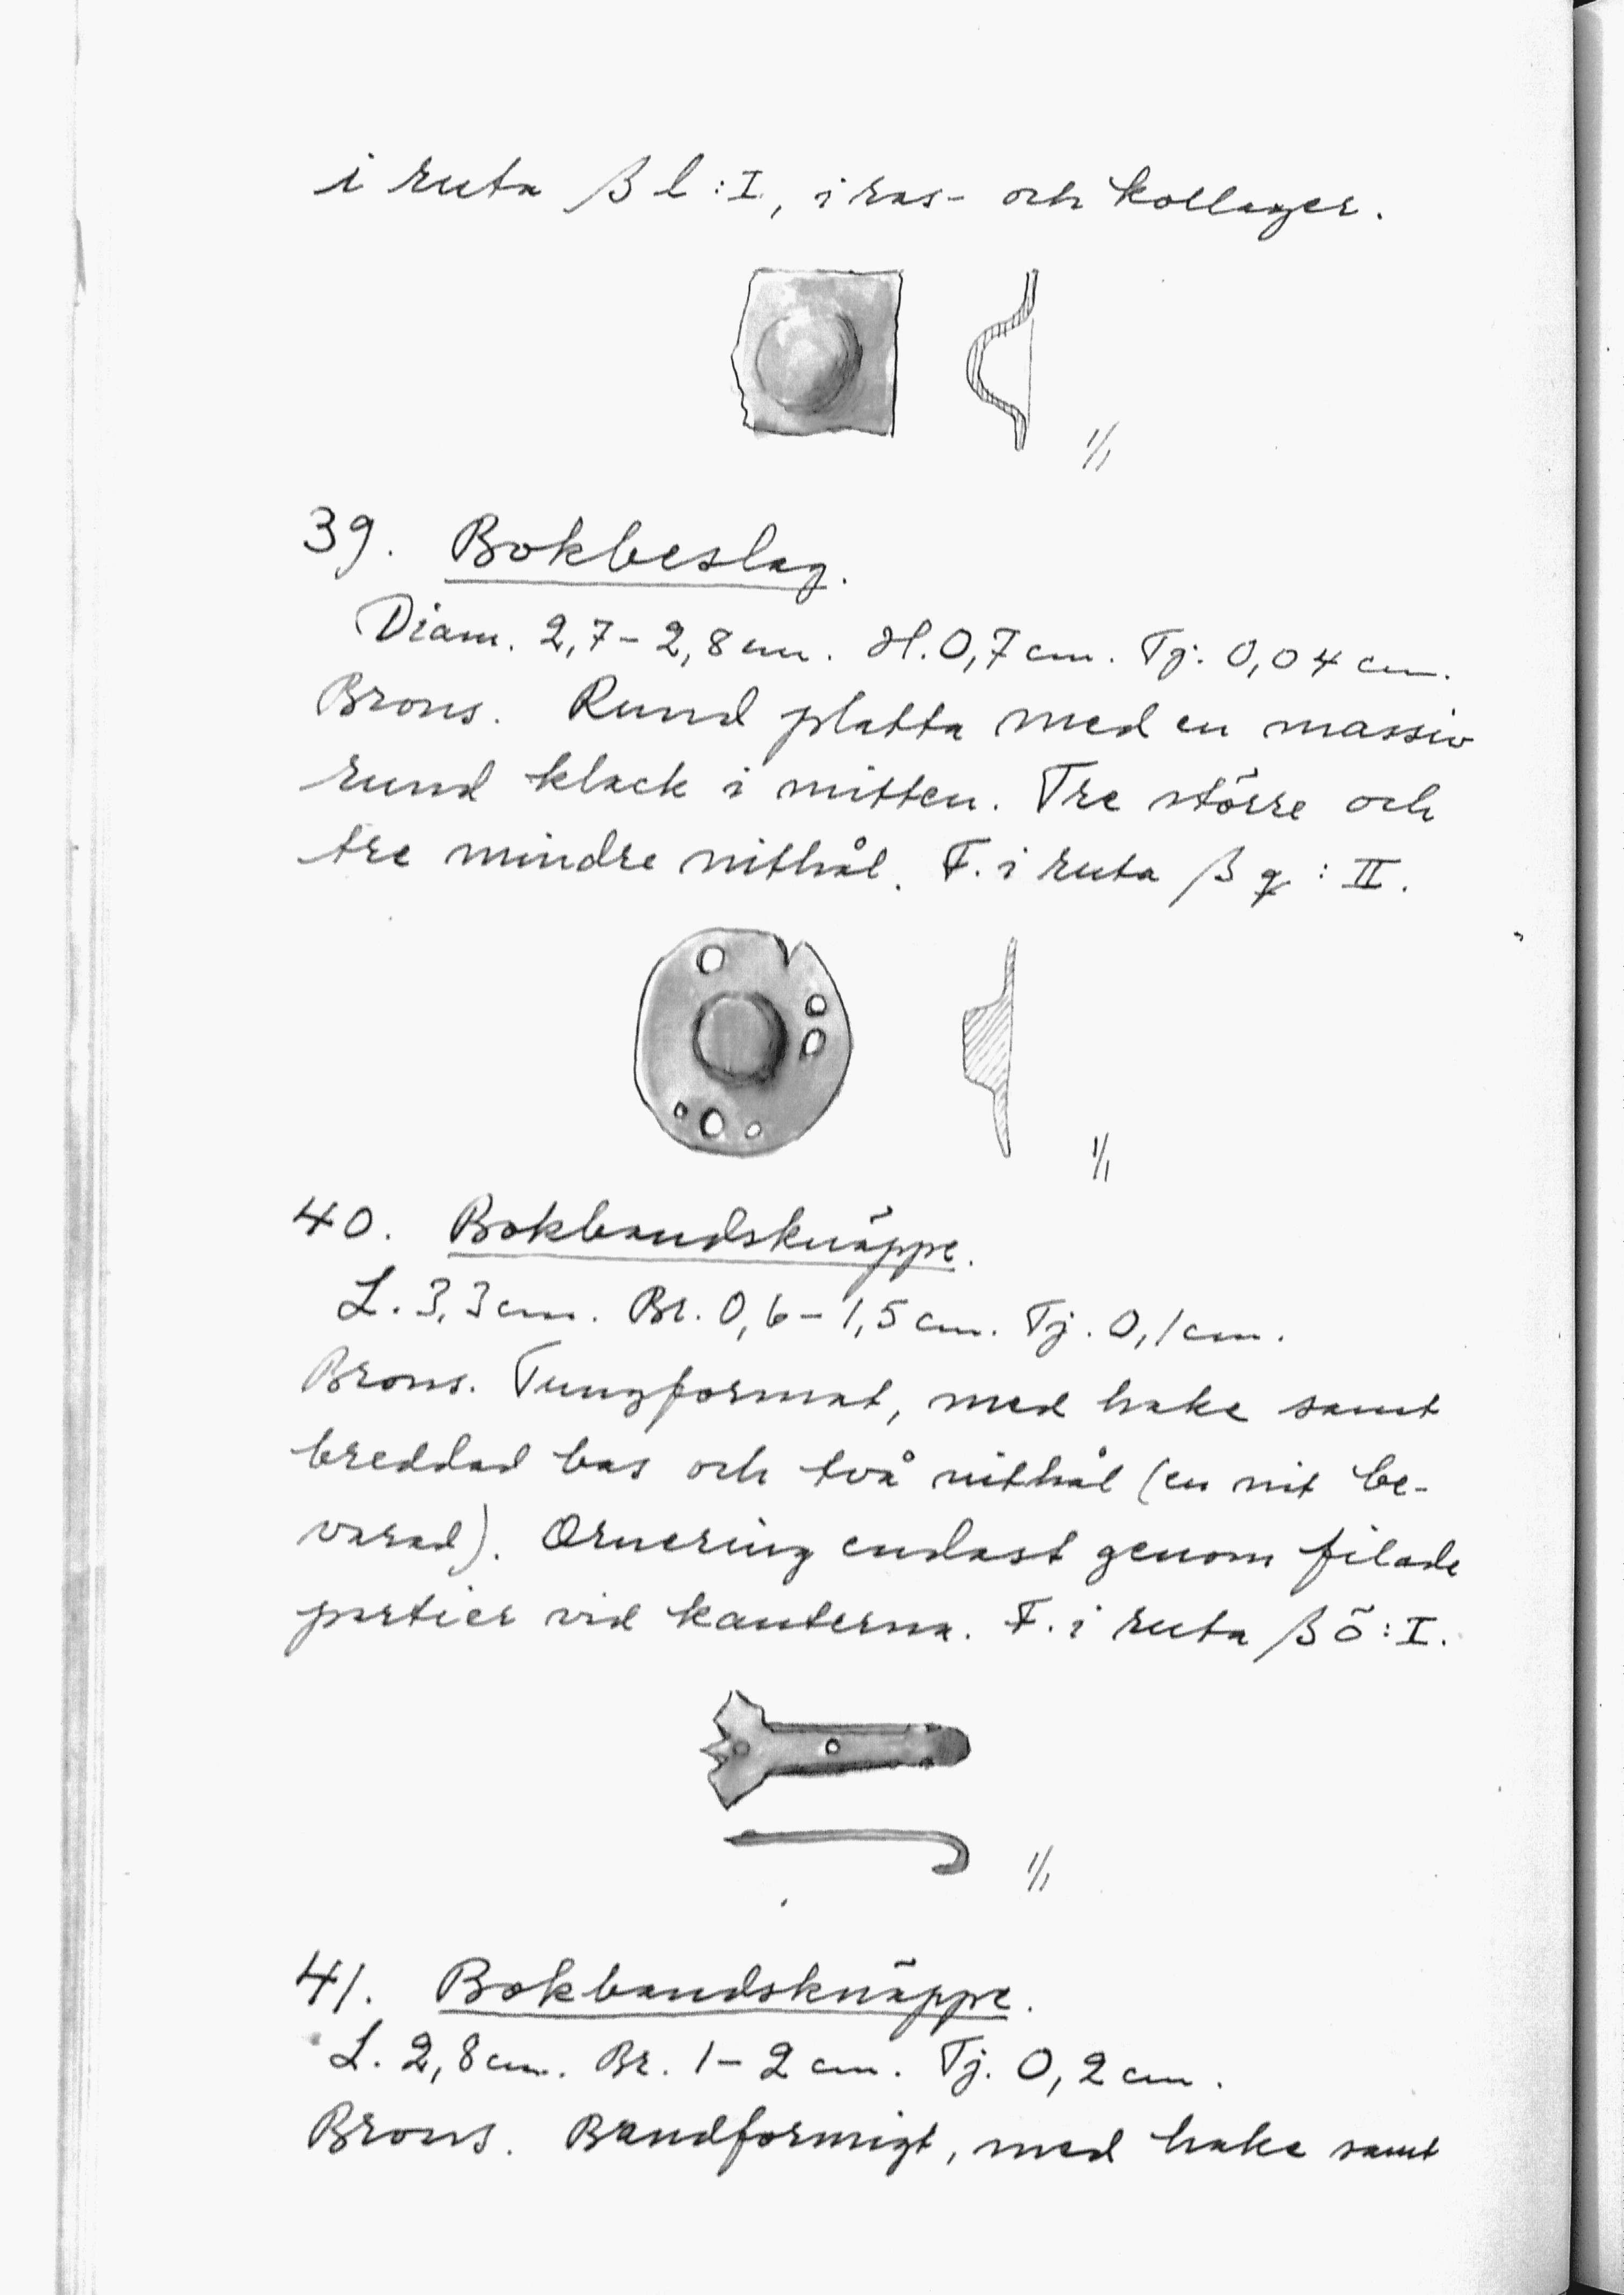 i ruta β l : I, i ras- och kollager.
1/1
39. Bokbeslag.
Diam. 2,7-2,8 cm. H. 0,7 cm. Tj. 0,04 cm.
Brons. Rund platta med en massiv
rund klack i mitten. Tre större och
tre mindre nithål. F. i ruta β q : II.
1/1
40. Bokbandsknäppe.
L. 3,3 cm. Br. 0,6-1,5 cm. Tj. 0,1 cm.
Brons. Tungformat, med hake samt
breddad bas och två nithål (en nit be-
varad). Ornering endast genom filade
partier vid kanterna. F. i ruta β ö : I.
1/1
41. Bokbandsknäppe.
L. 2,8 cm. Br. 1-2 cm. Tj. 0,2 cm.
Brons. Bandformigt, med hake samt